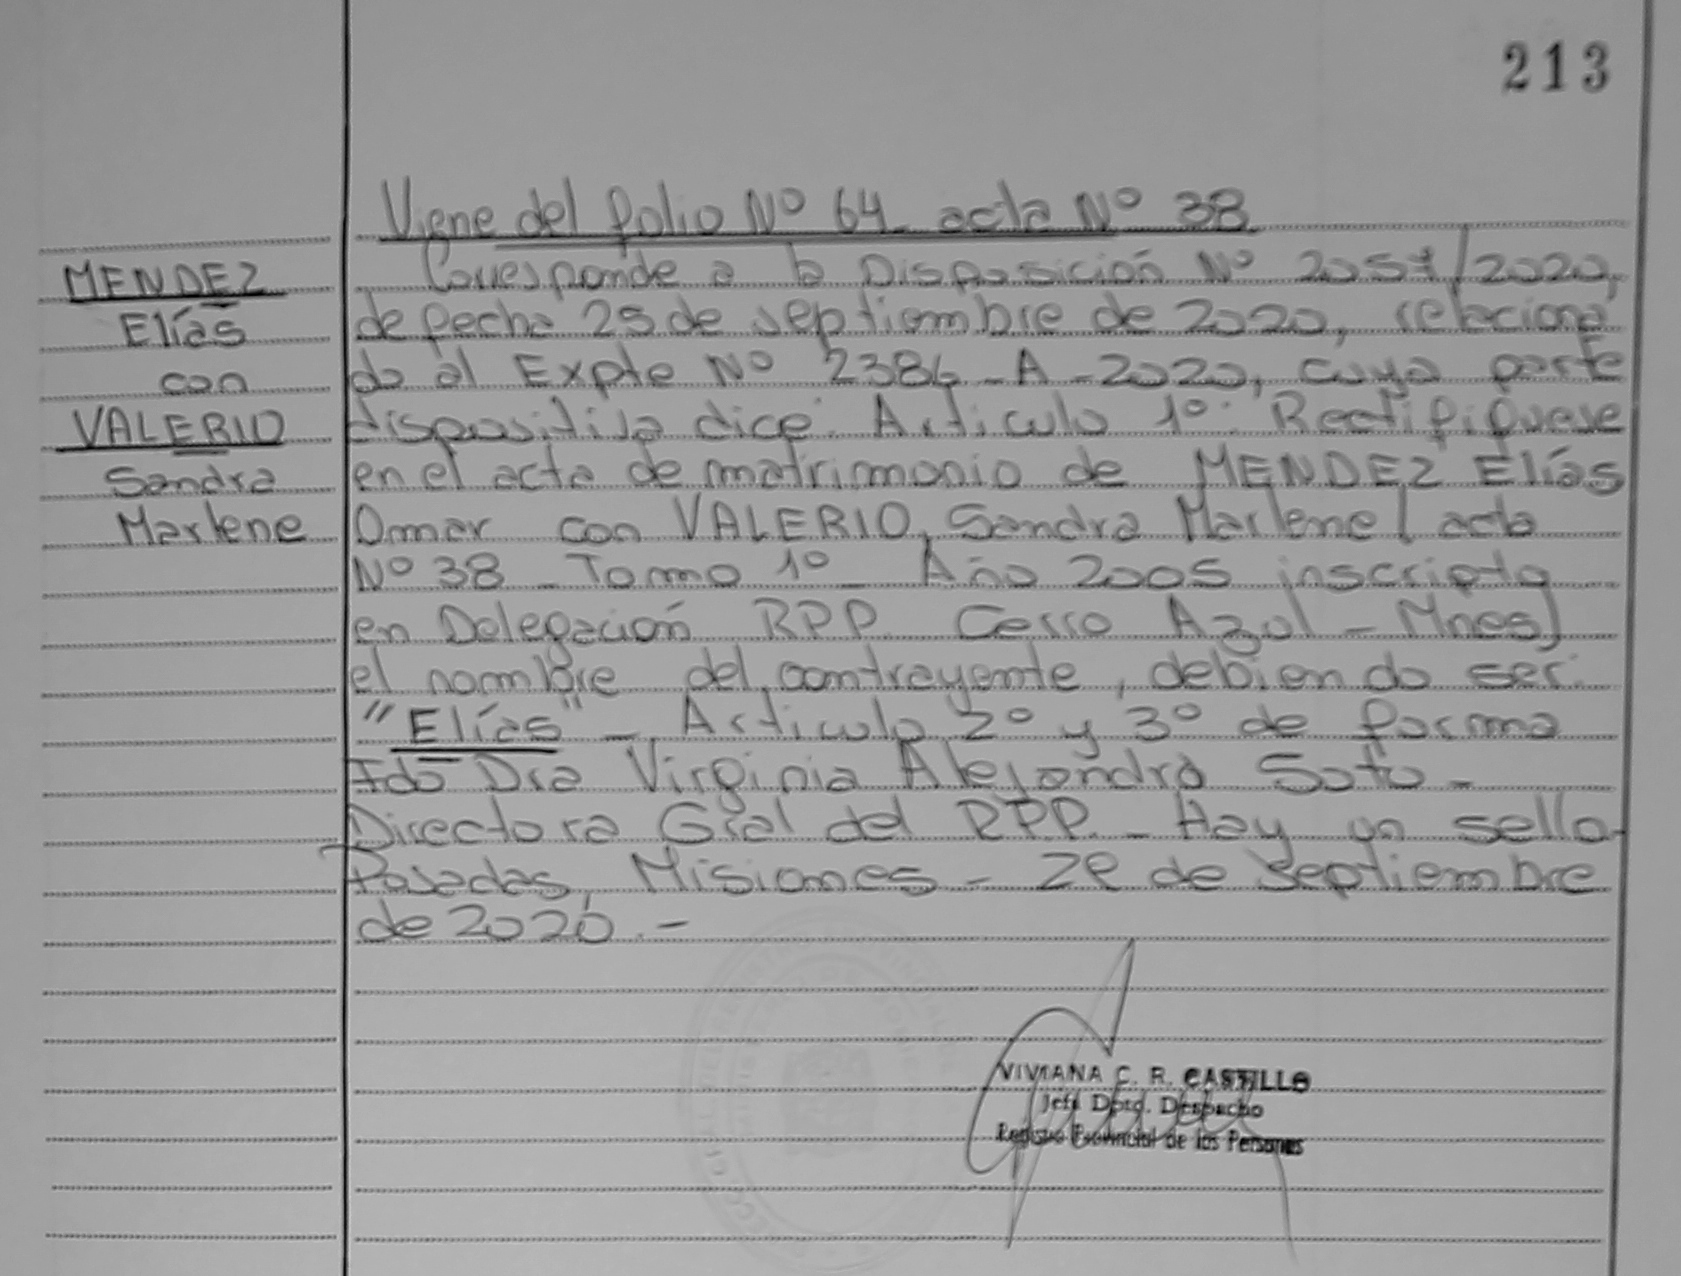 213
Viene del folio Nº 64 acta Nº 38
MENDEZ
Elías
con
VALERIO
Sandra
Marlene
Corresponde a la Disposición Nº 2057/2020,
de fecha 25 de septiembre de 2020, relaciona
do al Expte Nº 2386-A-2020, cuya parte
dispositiva dice: Articulo 1º: Rectifíquese
en el acta de matrimonio de MENDEZ Elías
Omar con VALERIO, Sandra Marlene (acta
Nº 38 - Tomo 1º - Año 2005 inscripta
en Delegación RPP. Cerro Azul - Mnes)
el nombre del contrayente, debiendo ser:
"Elías" - Articulo 2º y 3º de forma
Fdo Dra Virginia Alejandra Soto -
Directora Gral del RPP. - Hay un sello.
Posadas, Misiones - de Septiembre
de 2020.-
VIVIANA C. R. CASTILLO
Jefe Dpto. Despacho
Registro Provincial de las Personas